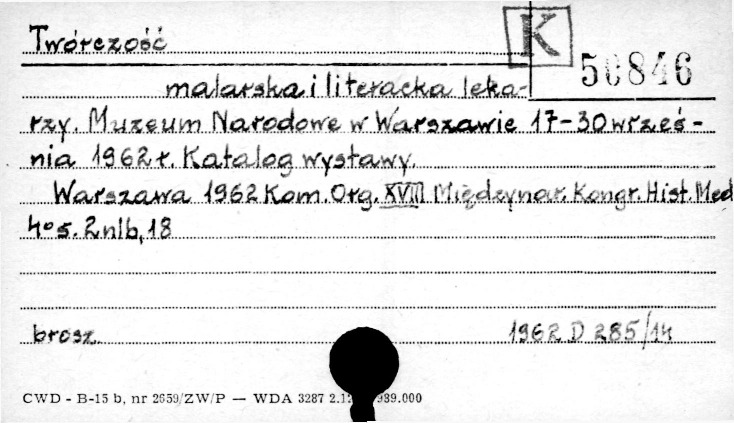 Twórczość
K
50846
malarska i literacka leka-
rzy. Muzeum Narodowe w Warszawie 17-30 wrześ-
nia 1962 r. Katalog wystawy.
Warszawa 1962 Kom. Org. XVIII Międzynar. Kongr. Hist. Med
4° s. 2 nlb, 18
brosz. 1962 D 285/14
CWD - B-15 b, nr 2659/ZW/P — WDA 3287 939.000